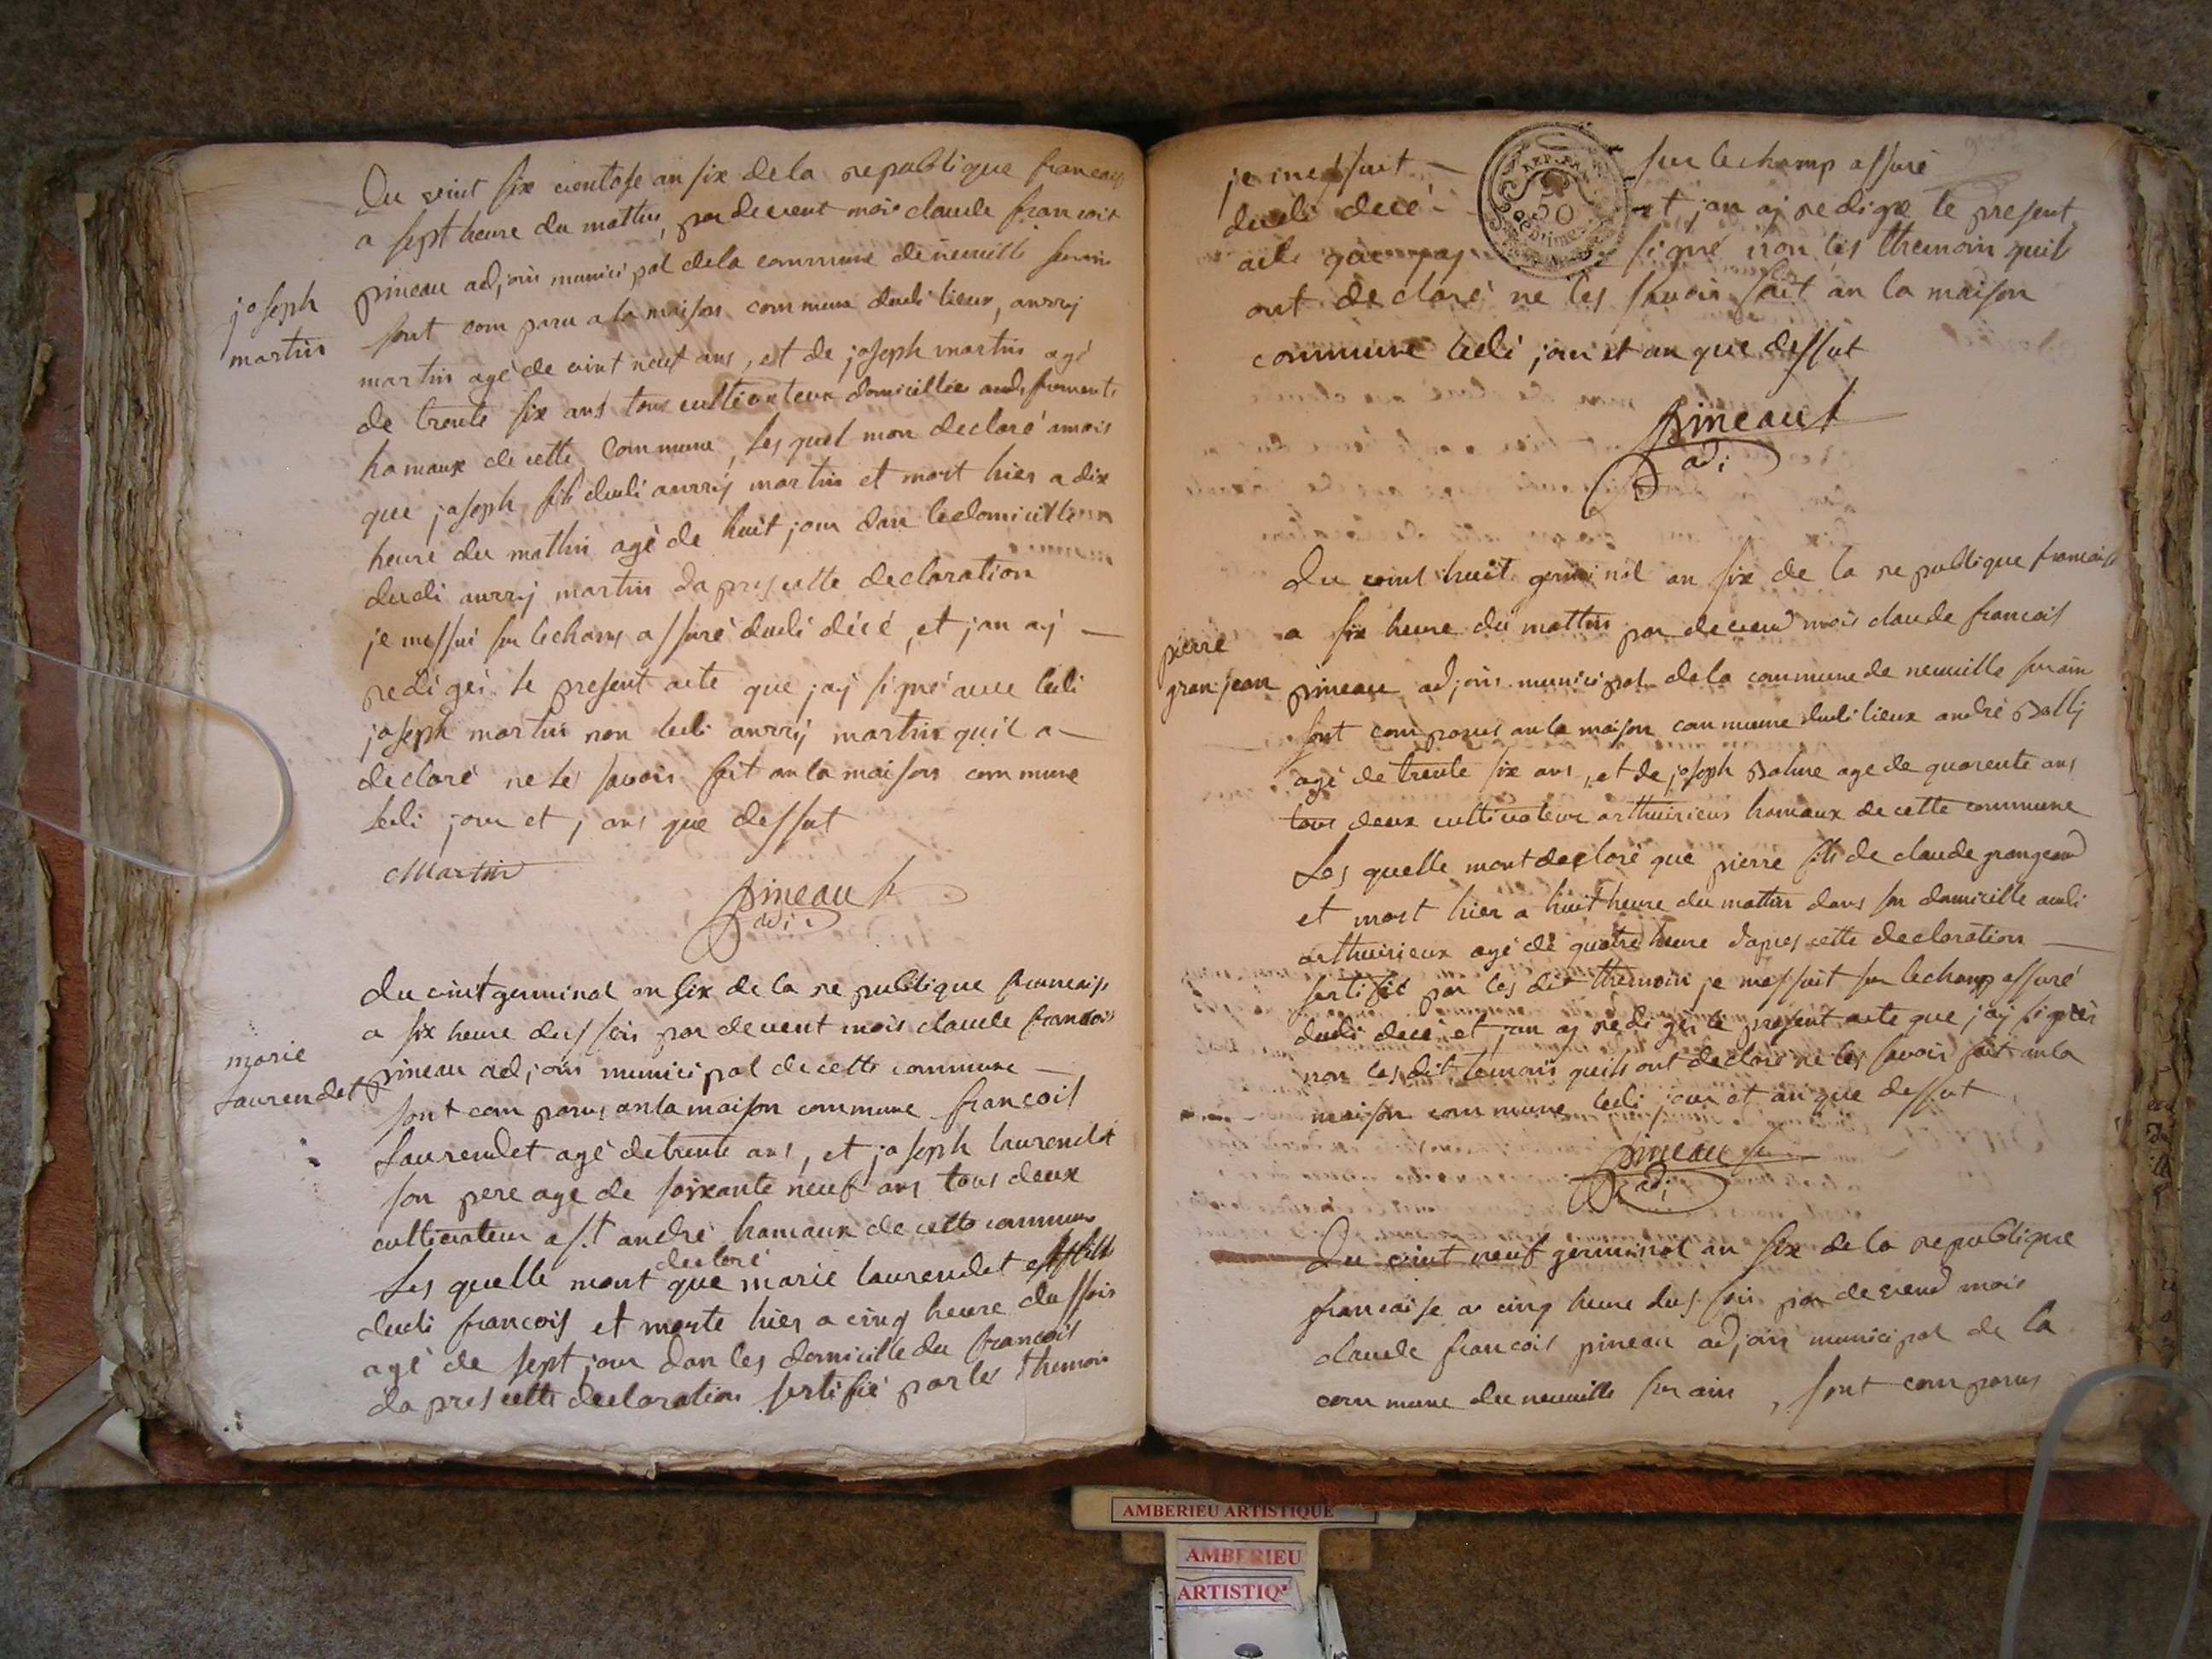 Du veint six ventose an six de la republique francaise
a sept heure du mattin, par devent moi claude francois
pineau adjoin municipal de la commune de neuville surain
sont com paru a la maison commune dudi lieux, anrrÿ
joseph
martin
martin agé de vint neuf ans, et de joseph martin agé
de trente six ans tous cultivateur domicillie aud fromente
hamaux de cette Commune, les quel mon declaré amois
que joseph fils dudi anrrÿ martin et mort hier a dix
heure du mattin agé de huit jour dan le domicille
dudi anrrÿ martin dapres cette declaration
je messui sur lechamp assuré dudi décé, et jan aÿ —
redigés le present acte que jaÿ signé avec ledi
joseph martin non ledi anrrÿ martin quil a —
declaré ne le savoir fait an la maison commune
ledi jour et j ans que dessut
Martin
pineau
adj
du vint germinal an six de la republique francaise
a six heure dussoir par devent mois claude francois
marie
laurendet
pineau adjoin municipal de cette commune —
sont com parus an la maison commune francois
laurendet agé de trente ans, et joseph laurendet
son pere age de soixante neuf ans tous deux
cultivateur a st andré hamaux de cette commune
declaré
Les quelle mont que marie laurendet
dudi francois et morte hier a cinq heure dussoir
agé de sept jour dan les domicille du francois
da pres cette declaration sertifié par les themoin
je messuit — sur lechamp assuré
dudi decé — et jan aj redigé le present
acte que jaj signé non les themoin quil
ont declaré ne les savoir fait an la maison
commune ledi jour et an que dessut
REP. FRA.
50
pineau
adj
Du vint huit germinal an six de la republique francaise
a six heure du mattin par devend mois claude francois
pierre
gran jean
pineau adjoin municipal de la commune de neuville surain
sont comparus an la maison commune dudi lieux andré Bally
agé de trente six ans, et de joseph age de quarente ans
tous deux cultivateur arthuirieux hamaux de cette commune
Les quelle mont declaré que pierre fils de claude grangeand
et mort hier a huit heure du mattin dans son domicille audi
arthuirieux agé de quatre heure dapres cette declaration —
sertifié par les dit themoin je messuit sur lechamp assuré
dudi decé et jan aj redigés le present acte que jaj signér
non les dit temoin quils ont declaré ne les savoir fait an la
maison commune ledi jour et an que dessut
pineau
adj
Du vint neuf germinal an six de la republique
francaise a cinq heure dus soir par devend mois
claude francois pineau adjoin municipal de la
commune de neuville sur ain, sont comparus
AMBERIEU ARTISTIQUE
AMBERIEU
ARTISTIQ